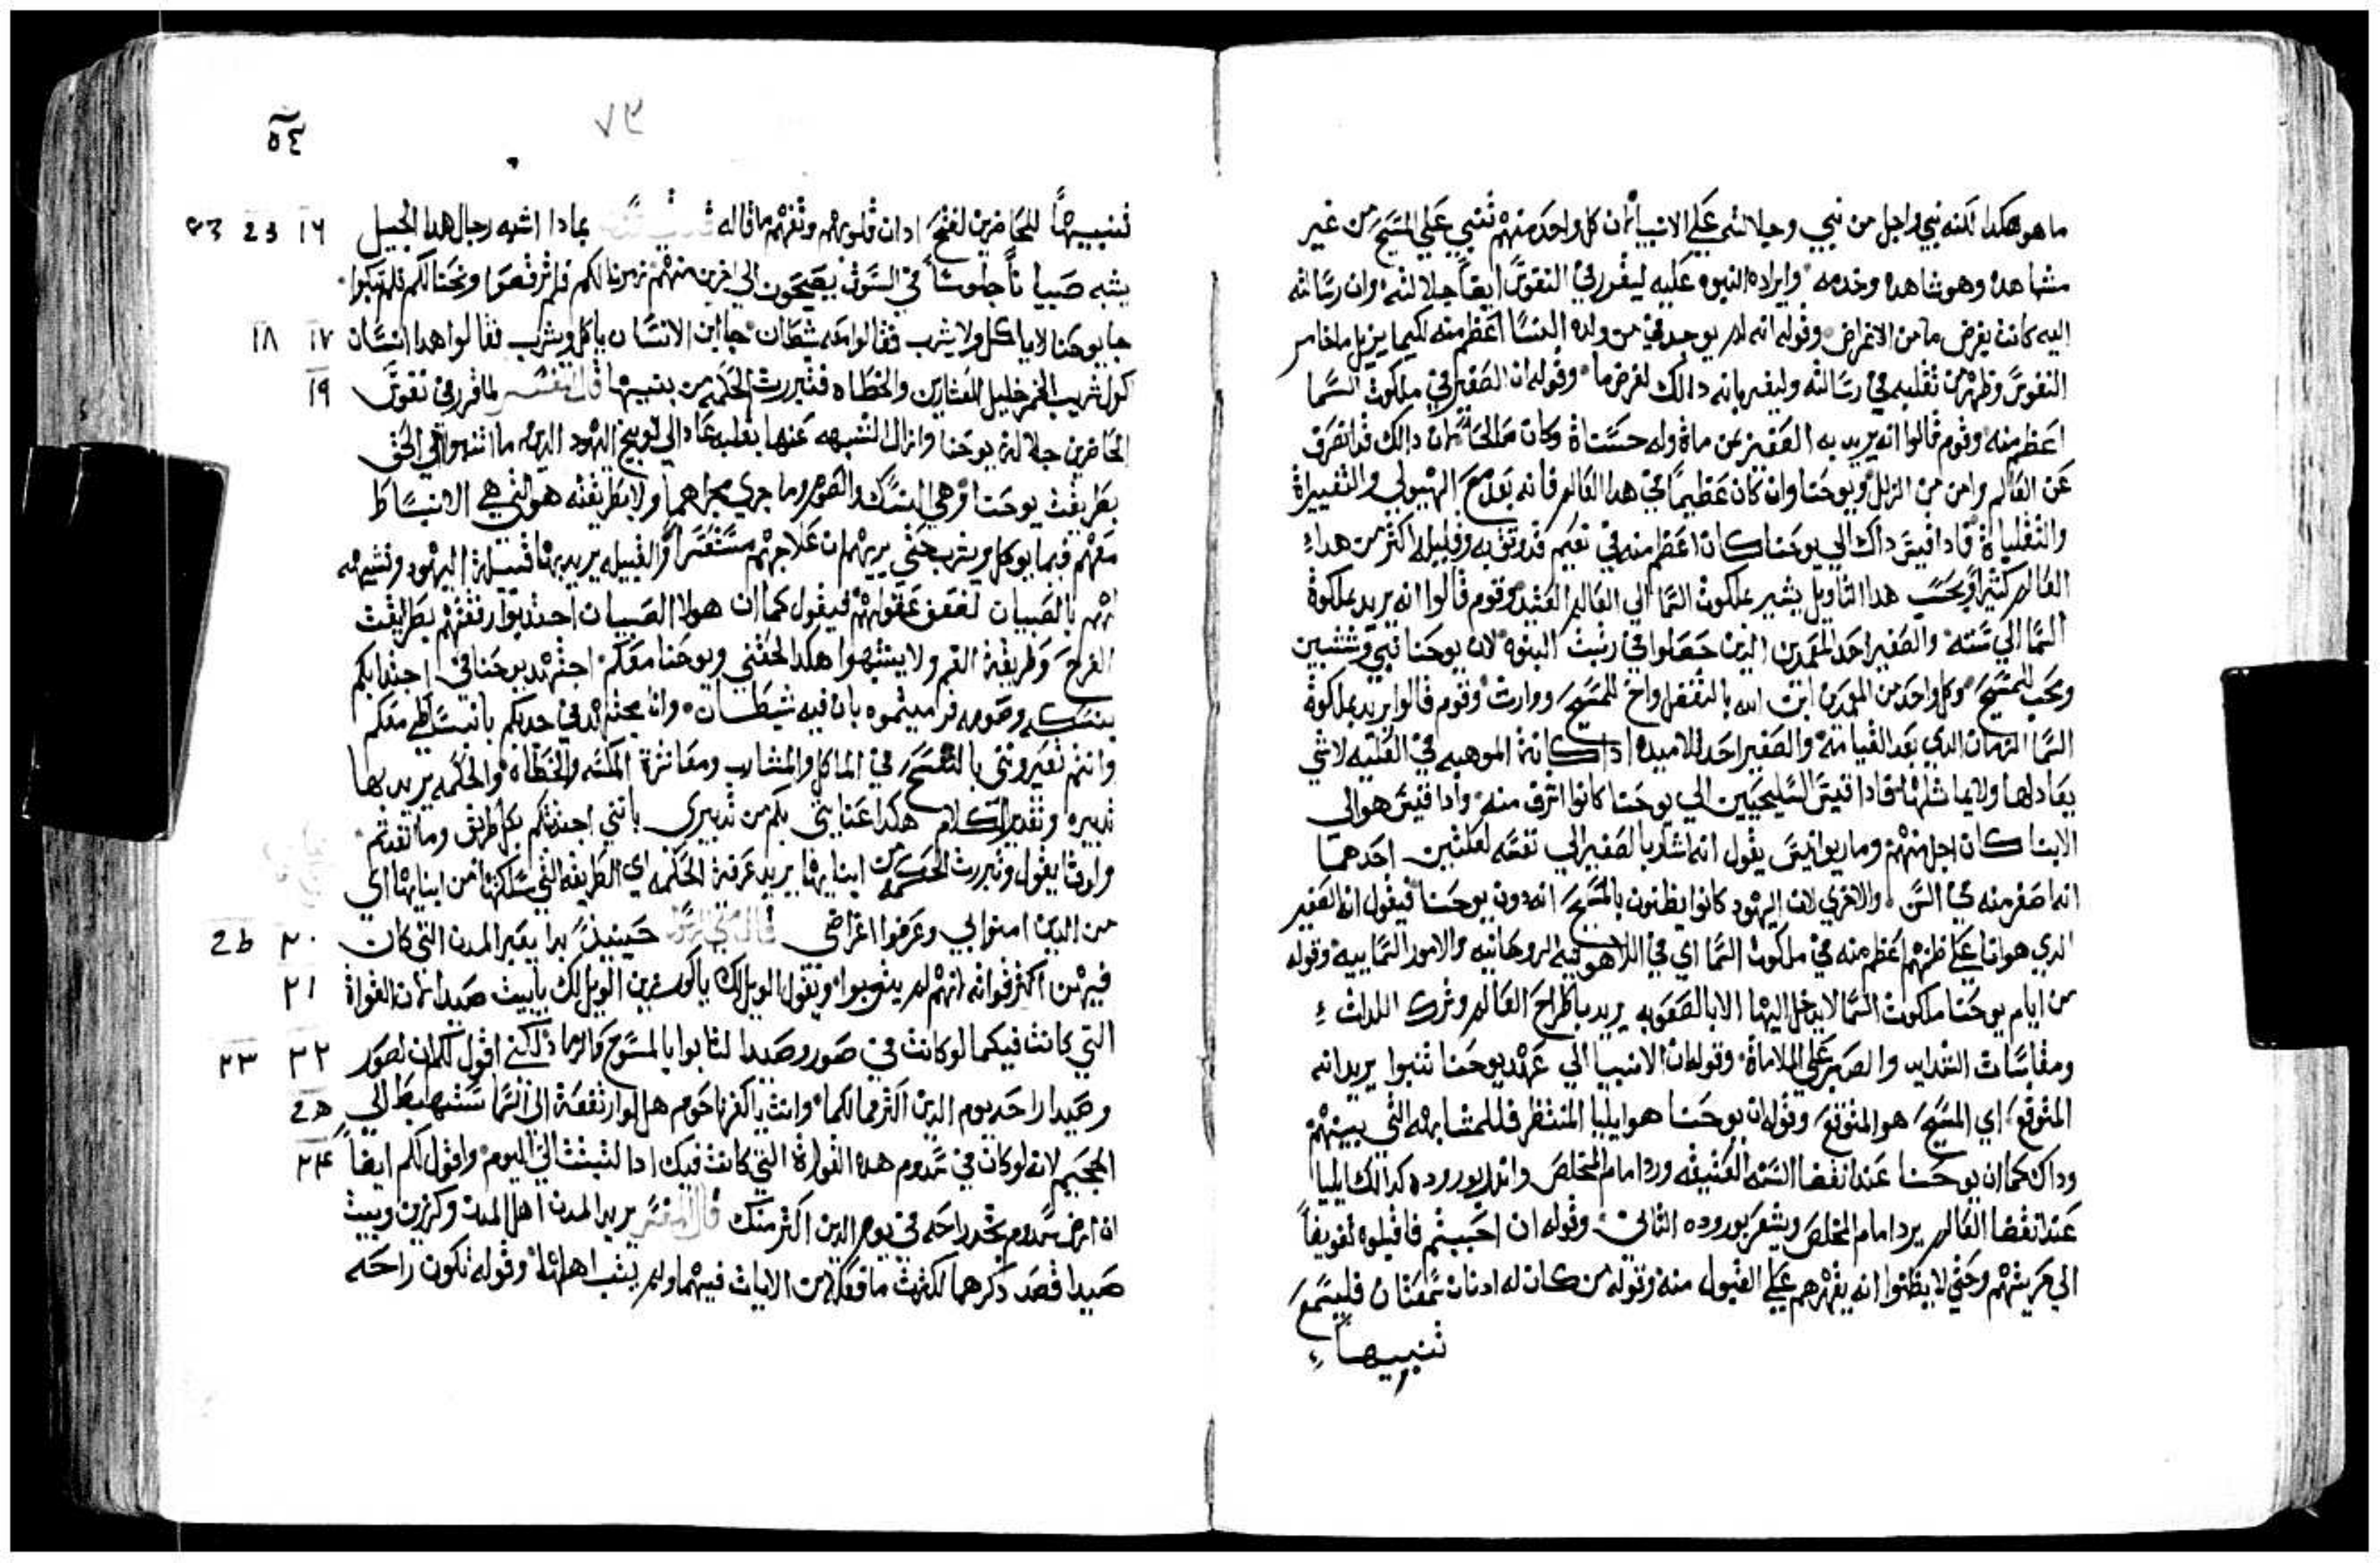 ما هو هكدا لكنه نبي واجل من نبي وجلالته علي الانبيا لان كل واحد منهم تنبي علي المسيح من غير
مشاهده وهو شاهده وخدمه وايراده النبوه عليه ليقرر في النفوس ايضا جلالته وان رسالته
اليه كانت بغرض ما من الاغراض وقوله انه لم يوجد في من ولده النسا اعظم منه لكيما يزيل ما خامر
النفوس وظهر من تقلبه في رسالته وليفهم بانه دالك لغرض ما وقوله ان الصغير في ملكوت السما
اعظم منه وقوم قالوا انه يريد به الفقير من ماة وله حسناة وكان صالحا لان دالك قد انصرف
عن العالم وامن من الزلل ويوحنا وان كان عظيما في هدا العالم فانه بعد مع الهيولي والتغييراة
والتقلباة فادا قيس داك الي يوحنا كان اعظم منه في نعيم قد وثق به وقليله اكثر من هدا
العالم كثيرا وبحسب هدا التاويل يشير بملكوت السما الي العالم العتيد وقوم قالوا انه يريد بملكوة
السما الي سنته والصغير احد المعمدين الدين حصلوا في رتبت البنوه لان يوحنا نبي وشتبين
ومحب للمسيح وكل واحد من المعمدين ابن الله بالتفضل واخ للمسيح ووارت وقوم قالوا يريد بملكوة
السما الزمان الدي بعد القيامة والصغير احد تلاميده ادا كانة الموهبه في العليه لا شي
يعادلها ولا يماثلها فادا قيس السليحيين الي يوحنا كانوا اشرف منه وادا قيس هو الي
الابنا كان اجل منهم وماريوانيس يقول انه اشار بالصغير الي نفسه لعلتين احدهما
انه اصغر منه في السن والاخري لان اليهود كانوا يظنون بالمسيح انه دون يوحنا فيقول ان الصغير
الدي هو انا علي ظنهم اعظم منه في ملكوت السما اي في اللاهوتيه الروحانيه والامور السماييه وقوله
من ايام يوحنا ملكوت السما لا يدخل اليها الا بالصعوبه يريد باطراح العالم وترك اللدات
ومقاسات الشدايد والصبر علي الملاماة وقوله ان الانبيا الي عهد يوحنا تنبوا يريد انه
المتوقع اي المسيح هو المتوقع وقوله ان يوحنا هو ايليا المنتظر فللمشابهه التي بينهم
وداك كما ان يوحنا عند انقضا السنه العتيقه ورد امام المخلص واندر بوروده كدالك ايليا
عند انقضا العالم يرد امام المخلص ويشعر بوروده التاني وقوله ان احببتم فاقبلوه تفويضا
الي حريتهم وحتي لا يظنوا انه يقهرهم علي القبول منه وقوله من كان له ادنان تسمعان فليسمع
تنبيها
٥٤
تنبيها للحاضرين لفتح ادان قلوبهم وتفهم ما قاله بمادا اشبه رجال هدا الجيل
١٦
يشبه صبيانا جلوسا في السوق يصيحون الي اخرين منهم زمرنا لكم فلم ترقصوا ونحنا لكم فلم تبكوا
جا يوحنا لا ياكل ولا يشرب فقالوا معه شيطان جا ابن الانسان ياكل ويشرب فقالوا هدا انسان
١٧ ١٨
كول شريب الخمر خليل للعشارين والخطاه فتبررت الحكمه من بنيها قال المفسر لما قرر في نفوس
١٩
الحاضرين جلالة يوحنا وازال الشبهه عنها بقلبه عاد الي توبيخ اليهود الدين ما انتهوا الي الحق
بطريقت يوحنا وهي النسك والصوم وما جري مجراهما ولا بطريقته هو التي هي الانبساط
معهم فيما يوكل ويشرب حتي يريهم ان علاجهم مستعسرا والقبيله يريد بها قبيلة اليهود وتشبيهه
لهم بالصبيان لضعف عقولهم فيقول كما ان هولا الصبيان اجتدبوا رفقتهم بطريقت
الفرح وطريقة الغم ولا ينتبهوا هكدا لحقني ويوحنا معكم اجتهد يوحنا في اجتدابكم
بنسكه وصومه فرميتموه بان فيه شيطان وانا مجتهد في جدبكم بانبساطي معكم
وانتم تعيروني بالتفسح في الماكل والمشارب ومعاشرة المكسه والخطاة والحكمه يريد بها
تدبيره وتقدير الكلام هكدا عنايتي بكم من تدبيري باني اجتدبكم بكل طريق وما انفتم
وادنا يقول وتبررت الحكمه من ابنايها يريد عرفة الحكمه اي الطريقه التي سلكتها من ابنايها اي
من الدين امنوا بي وعرفوا اغراضي حينيد بدا يعير المدن التي كان
٢٠
فيهن اكثر قواته لانهم لم يتوبوا ويقول الويل لك يا كورزين الويل لك يا بيت صيدا لان القواة
٢١
التي كانت فيكما لو كانت في صور وصيدا لتابوا بالمسوح والرماد لكني اقول لكم ان لصور
٢٢ ٢٣
وصيدا راحه يوم الدين اكثر مما لكما وانت يا كفرناحوم هل لو ارتفعة الي السما ستهبط الي
الجحيم لانه لو كان في سدوم هده القواة التي كانت فيك ادا لثبتت الي اليوم واقول لكم ايضا
٢٤
ان ارض سدوم تجد راحه في يوم الدين اكثر منك قال المفسر يريد المدن اهل المدن وكرزين وبيت
صيدا قصد دكرهما لكثرت ما فعله من الايات فيهما ولم يتب اهلها وقوله تكون راحه